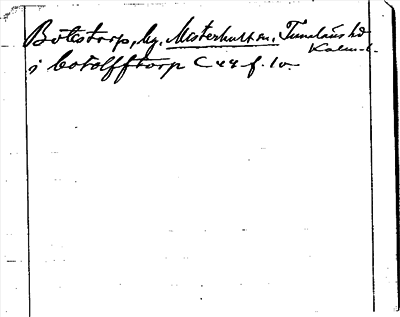 Botestorp, by. Misterhults sn. Tunaläns hd
Kalm. l.
i botolfftorp C 44 f. 10.